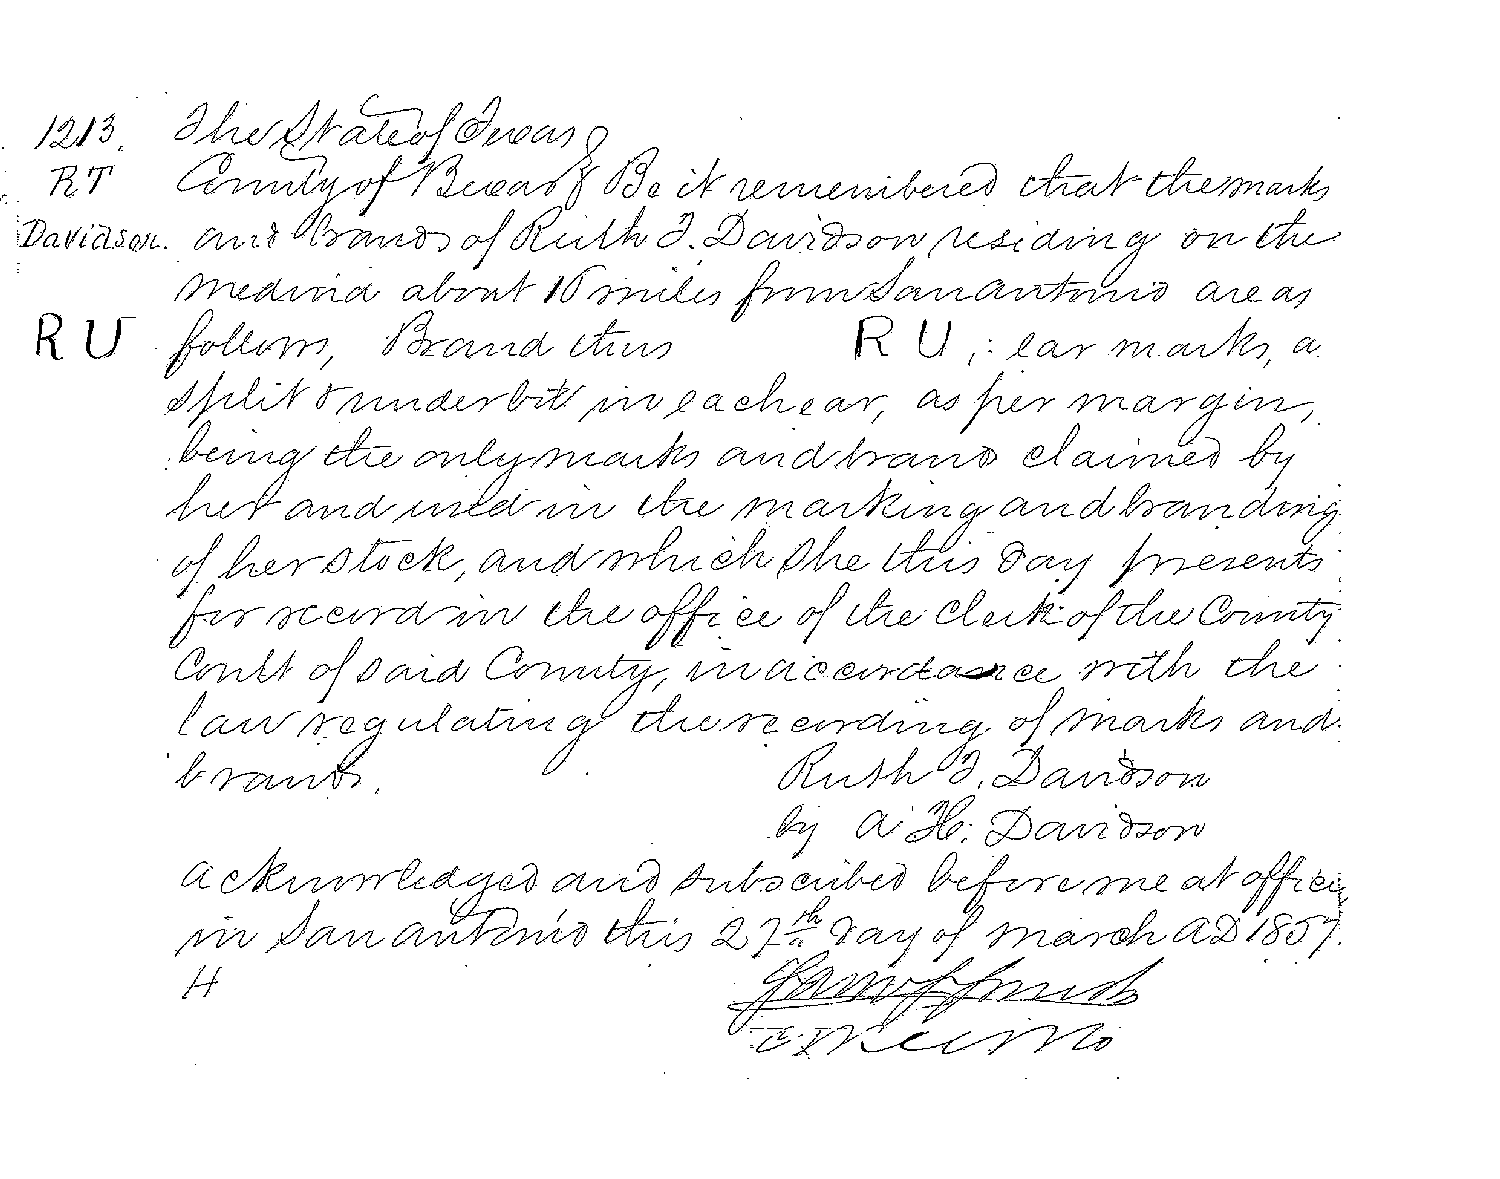 1213. The State of Texas
RT County of Bexar } Be it remembered that the marks
Davidson. and brands of Ruth T. Davidson residing on the
medina about 16 miles from San antonio are as
RU follows, Brand thus RU,: ear marks, a
split & underbit in each ear, as per margin,
being the only marks and brand claimed by
her and used in the marking and branding
of her stock, and which she this day presents
for record in the office of the clerk of the County
Court of said County, in accordance with the
law regulating the recording of marks and
brands. Ruth T. Davidson
by A H. Davidson
acknowledged and subscribed before me at office
in San antonio this 27th day of march AD 1857.
H